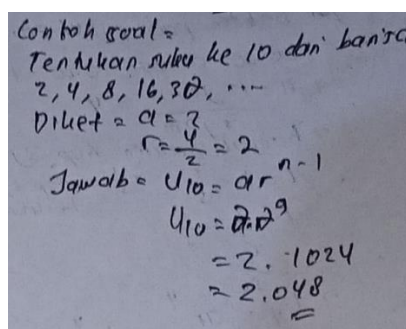 Contoh soal =
Tentukan suku ke 10 dari baris
2, 4, 8, 16, 32, ...
Diket = a = 2
r = 4/2 = 2
Jawab = U10 = ar^n-1
U10 = 2.2^9
= 2. 1024
= 2.048